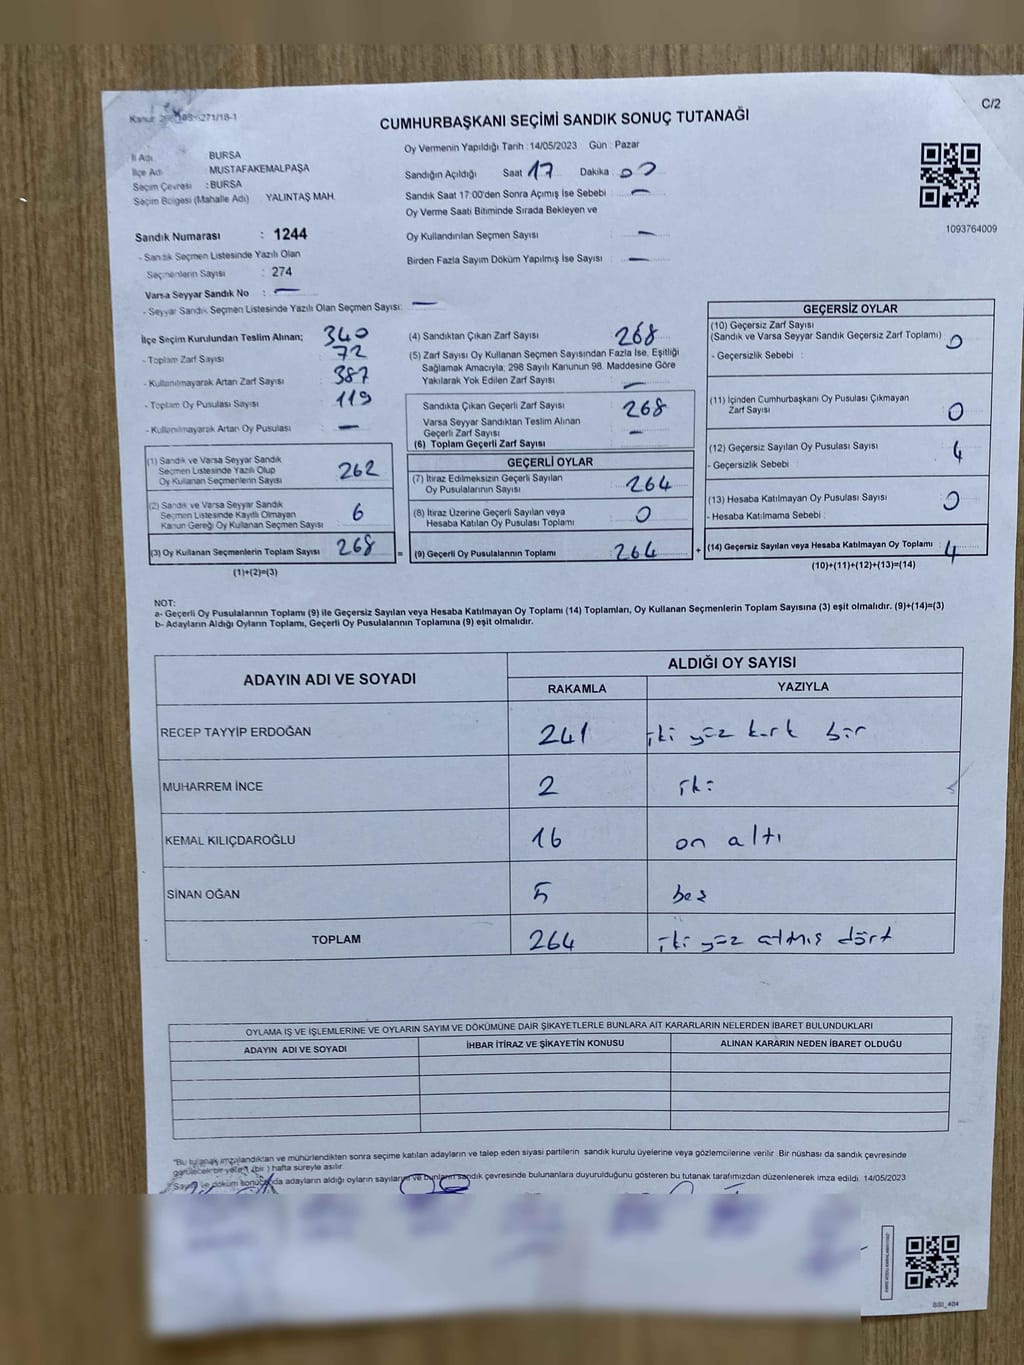 C/2
CUMHURBAŞKANI SEÇİMİ SANDIK SONUÇ TUTANAĞI
İl Adı BURSA
İlçe Adı : MUSTAFAKEMALPAŞA
Seçim Çevresi : BURSA
Seçim Bölgesi (Mahalle Adı) YALINTAŞ MAH.
Sandık Numarası : 1244
- Sandık Seçmen Listesinde Yazılı Olan
Seçmenlerin Sayısı : 274
Varsa Seyyar Sandık No : —
- Seyyar Sandık Seçmen Listesinde Yazılı Olan Seçmen Sayısı: —
Oy Vermenin Yapıldığı Tarih : 14/05/2023 Gün : Pazar
Sandığın Açıldığı Saat 17 Dakika : 00
Sandık Saat 17:00'den Sonra Açımış İse Sebebi : —
Oy Verme Saati Bitiminde Sırada Bekleyen ve
Oy Kullandırılan Seçmen Sayısı : —
Birden Fazla Sayım Döküm Yapılmış İse Sayısı : —
1093764009
İlçe Seçim Kurulundan Teslim Alınan; 340
- Toplam Zarf Sayısı : 72
- Kullanılmayarak Artan Zarf Sayısı : 387
- Toplam Oy Pusulası Sayısı : 119
- Kullanılmayarak Artan Oy Pusulası : —
(1) Sandık ve Varsa Seyyar Sandık
Seçmen Listesinde Yazılı Olup
Oy Kullanan Seçmenlerin Sayısı : 262
(2) Sandık ve Varsa Seyyar Sandık
Seçmen Listesinde Kayıtlı Olmayan
Kanun Gereği Oy Kullanan Seçmen Sayısı : 6
(3) Oy Kullanan Seçmenlerin Toplam Sayısı : 268
(1)+(2)=(3)
(4) Sandıktan Çıkan Zarf Sayısı : 268
(5) Zarf Sayısı Oy Kullanan Seçmen Sayısından Fazla İse, Eşitliği
Sağlamak Amacıyla; 298 Sayılı Kanunun 98. Maddesine Göre
Yakılarak Yok Edilen Zarf Sayısı : —
Sandıkta Çıkan Geçerli Zarf Sayısı : 268
Varsa Seyyar Sandıktan Teslim Alınan
Geçerli Zarf Sayısı : —
(6) Toplam Geçerli Zarf Sayısı
GEÇERLİ OYLAR
(7) İtiraz Edilmeksizin Geçerli Sayılan
Oy Pusulalarının Sayısı : 264
(8) İtiraz Üzerine Geçerli Sayılan veya
Hesaba Katılan Oy Pusulası Toplamı : 0
= (9) Geçerli Oy Pusulalarının Toplamı : 264
GEÇERSİZ OYLAR
(10) Geçersiz Zarf Sayısı
(Sandık ve Varsa Seyyar Sandık Geçersiz Zarf Toplamı) : 0
- Geçersizlik Sebebi :
(11) İçinden Cumhurbaşkanı Oy Pusulası Çıkmayan
Zarf Sayısı : 0
(12) Geçersiz Sayılan Oy Pusulası Sayısı : 4
- Geçersizlik Sebebi :
(13) Hesaba Katılmayan Oy Pusulası Sayısı : 0
- Hesaba Katılmama Sebebi :
+ (14) Geçersiz Sayılan veya Hesaba Katılmayan Oy Toplamı : 4
(10)+(11)+(12)+(13)=(14)
NOT:
a- Geçerli Oy Pusulalarının Toplamı (9) ile Geçersiz Sayılan veya Hesaba Katılmayan Oy Toplamı (14) Toplamları, Oy Kullanan Seçmenlerin Toplam Sayısına (3) eşit olmalıdır. (9)+(14)=(3)
b- Adayların Aldığı Oyların Toplamı, Geçerli Oy Pusulalarının Toplamına (9) eşit olmalıdır.
ADAYIN ADI VE SOYADI ALDIĞI OY SAYISI
RAKAMLA YAZIYLA
RECEP TAYYİP ERDOĞAN 241 iki yüz kırk bir
MUHARREM İNCE 2 iki
KEMAL KILIÇDAROĞLU 16 on altı
SİNAN OĞAN 5 beş
TOPLAM 264 iki yüz altmış dört
OYLAMA İŞ VE İŞLEMLERİNE VE OYLARIN SAYIM VE DÖKÜMÜNE DAİR ŞİKAYETLERLE BUNLARA AİT KARARLARIN NELERDEN İBARET BULUNDUKLARI
ADAYIN ADI VE SOYADI İHBAR İTİRAZ VE ŞİKAYETİN KONUSU ALINAN KARARIN NEDEN İBARET OLDUĞU
*Bu tutanak imzalandıktan ve mühürlendikten sonra seçime katılan adayların ve talep eden siyasi partilerin sandık kurulu üyelerine veya gözlemcilerine verilir. Bir nüshası da sandık çevresinde
görülecek bir yere 1 (bir) hafta süreyle asılır.
*Sayım ve döküm sonucunda adayların aldığı oyların sayılarını ve bunların sandık çevresinde bulunanlara duyurulduğunu gösteren bu tutanak tarafımızdan düzenlenerek imza edildi. 14/05/2023